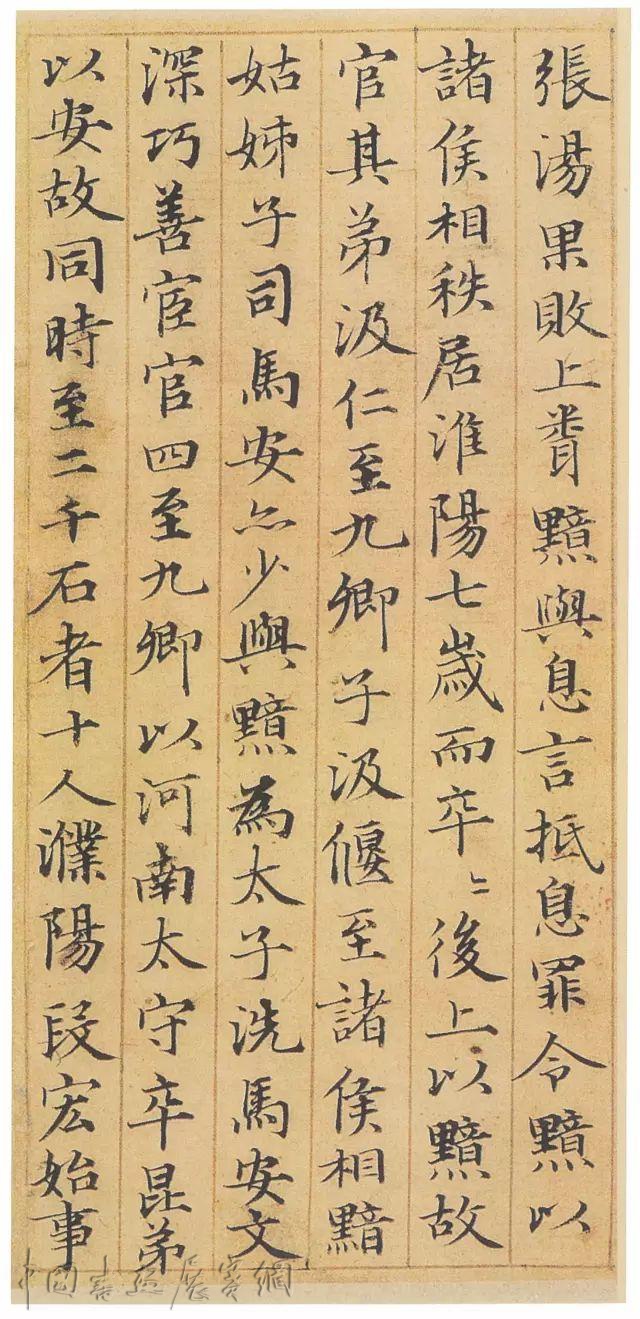 張湯果敗上聞黯與息言抵息罪令黯以
諸侯相秩居淮陽七歲而卒〻後上以黯故
官其弟汲仁至九卿子汲偃至諸侯相黯
姑姊子司馬安亦少與黯為太子洗馬安文
深巧善宦官四至九卿以河南太守卒昆弟
以安故同時至二千石者十人濮陽段宏始事
中國書法展賽網